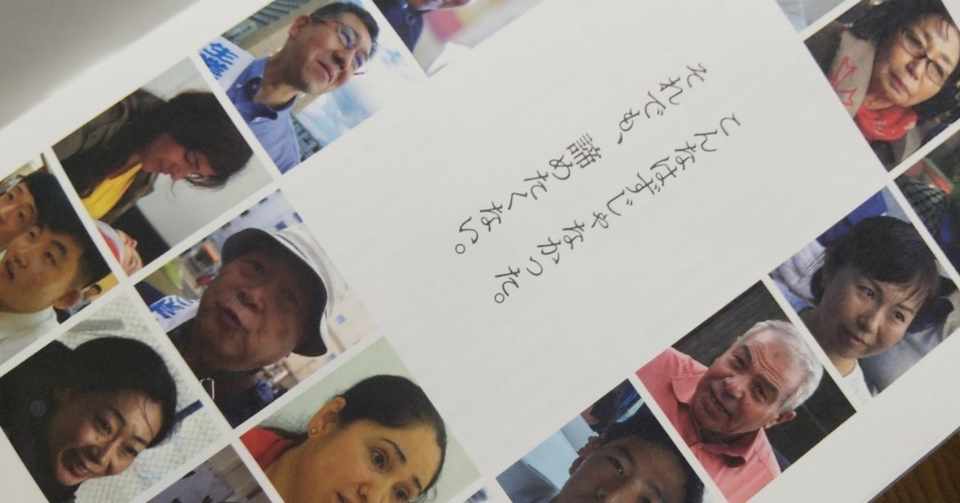 こんなはずじゃなかった。
それでも、諦めたくない。